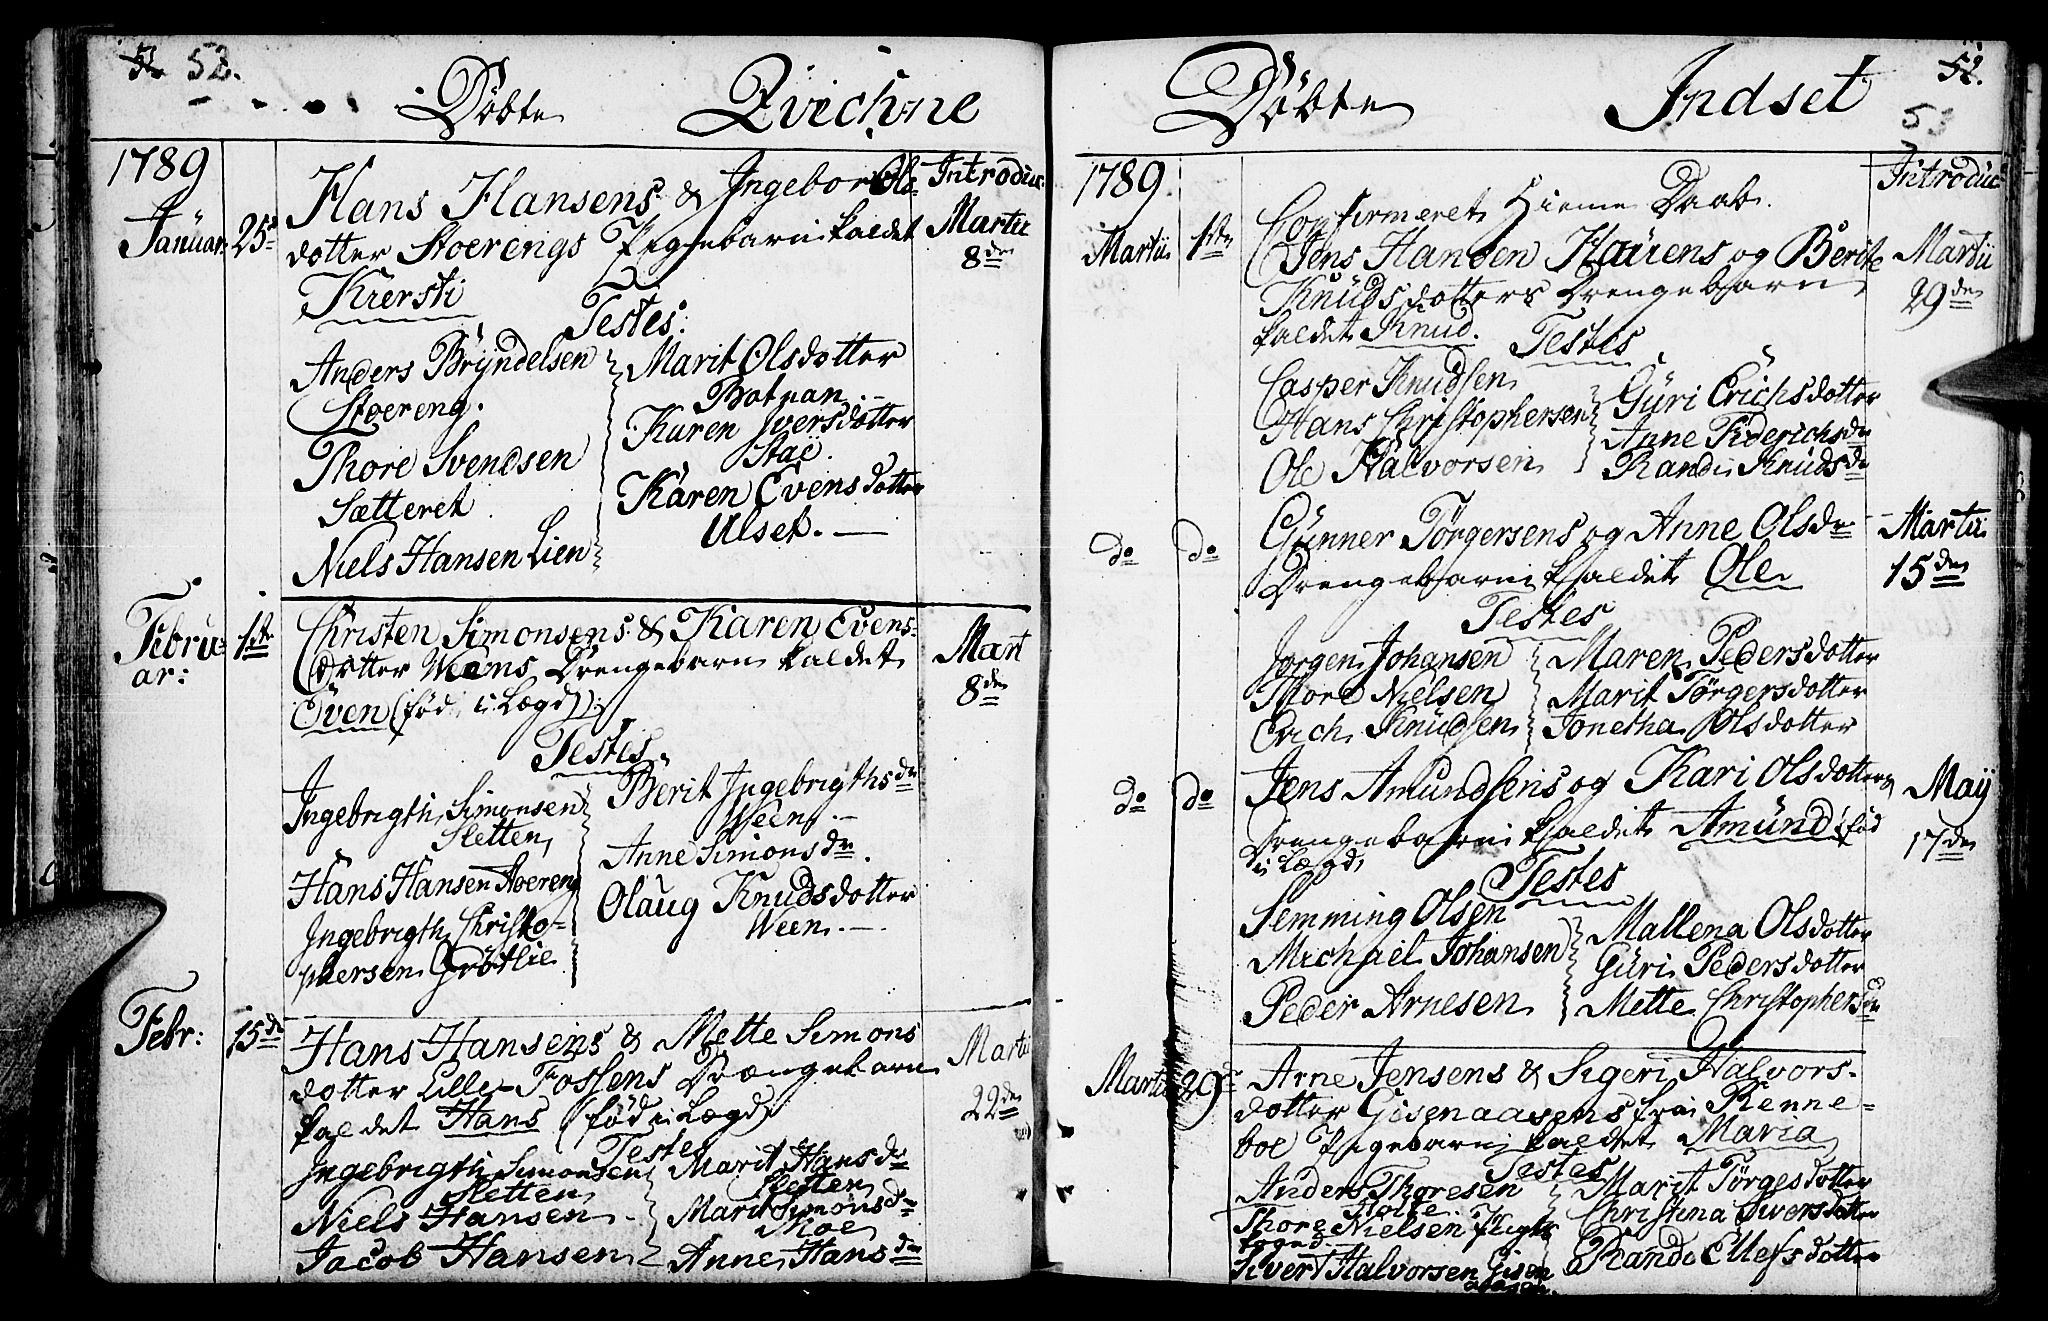 52.
Döbte Qvichne
1789
Januar 25de
Hans Hansens & Ingebor Ols
dotter Stoerengs Pigebarn kaldet
Kiersti
Introduc:
Martii
8de
Testes:
Anders Bryndelsen
Stoereng.
Thore Svendsen
Sætteret
Niels Hansen Lien
Marit Olsdotter
Karen Iversdotter
Staï.
Karen Evensdotter
Ulset.
Februar: 1ste
Christen Simonsens & Karen Evens
dotter Weens Drengebarn kaldet
Even (född i Lægd)
Mart
8de
Testes
Ingebrigth Simonsen
Sletten
Hans Hansen Stoereng
Ingebrigth Christo-
phersen Grøtlie
Berit Ingebrigthsdr
Ween.
Anne Simonsdr.
Olaug Knudsdotter
Ween.
Febr: 15de
Hans Hansens & Mette Simons
dotter Lille Fossens Drængebarn
kaldet Hans (föd i Lægd)
Martii
22de
Testes
Ingebrigth Simonsen
Sletten
Niels Hansen
Jacob Hansen
Marit Hansdr
Sletten
Marit Simonsdr
Moe
Anne Hansdr
Döbte Indset
52.
53
1789.
Martii 1ste
Confirmeret Hieme Daab.
Jens Hansen Haugens og Berite
Knudsdotters Drengebarn
kaldet Knud.
Introduc
Martii
29de
Testes
Casper Knudsen
Hans Christophersen
Ole Halvorsen
Guri Erichsdotter
Anne Friderichsdr
Randi Knudsdr
do do
Gunner Törgersens og Anne Olsdr
Drengebarn kaldet Ole
Martii
15de
Testes
Jörgen Johansen
Thore Nielsen
Erich Knudsen
Maren Pedersdotter
Marit Törgersdotter
Jonetha Olsdotter
do do
Jens Amundsens og Kari Olsdotters
Drengebarn kaldet Amund (föd
i Lægd)
Maij
17de
Testes
Semming Olsen
Michael Johansen
Peder Arnesen
Mallena Olsdotter
Guri Pedersdotter
Mette Christophersdr
Martii 29de
Arne Jensens & Sigeri Halvors-
dotter Gisenaasens fra Renne-
boe Pigebarn kaldet Maria
Testes
Anders Thoresen
Stölie
Thore Nielsen
Sivert Halvorsen Gisen
aasen.
Marit Törgesdotter
Christina Iversdotter
Randi Ellefsdotter